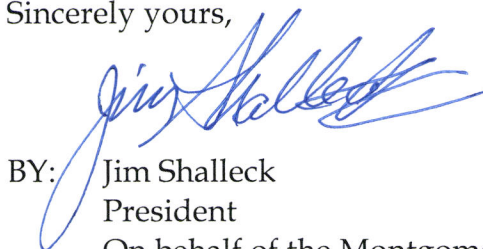 Sincerely yours,
Jim Shalleck
BY: Jim Shalleck
President
On behalf of the Montgom